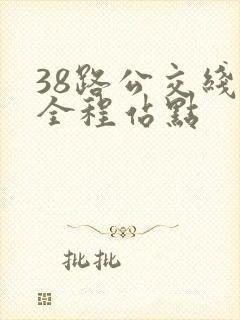 38路公交线
全程佔點
批批